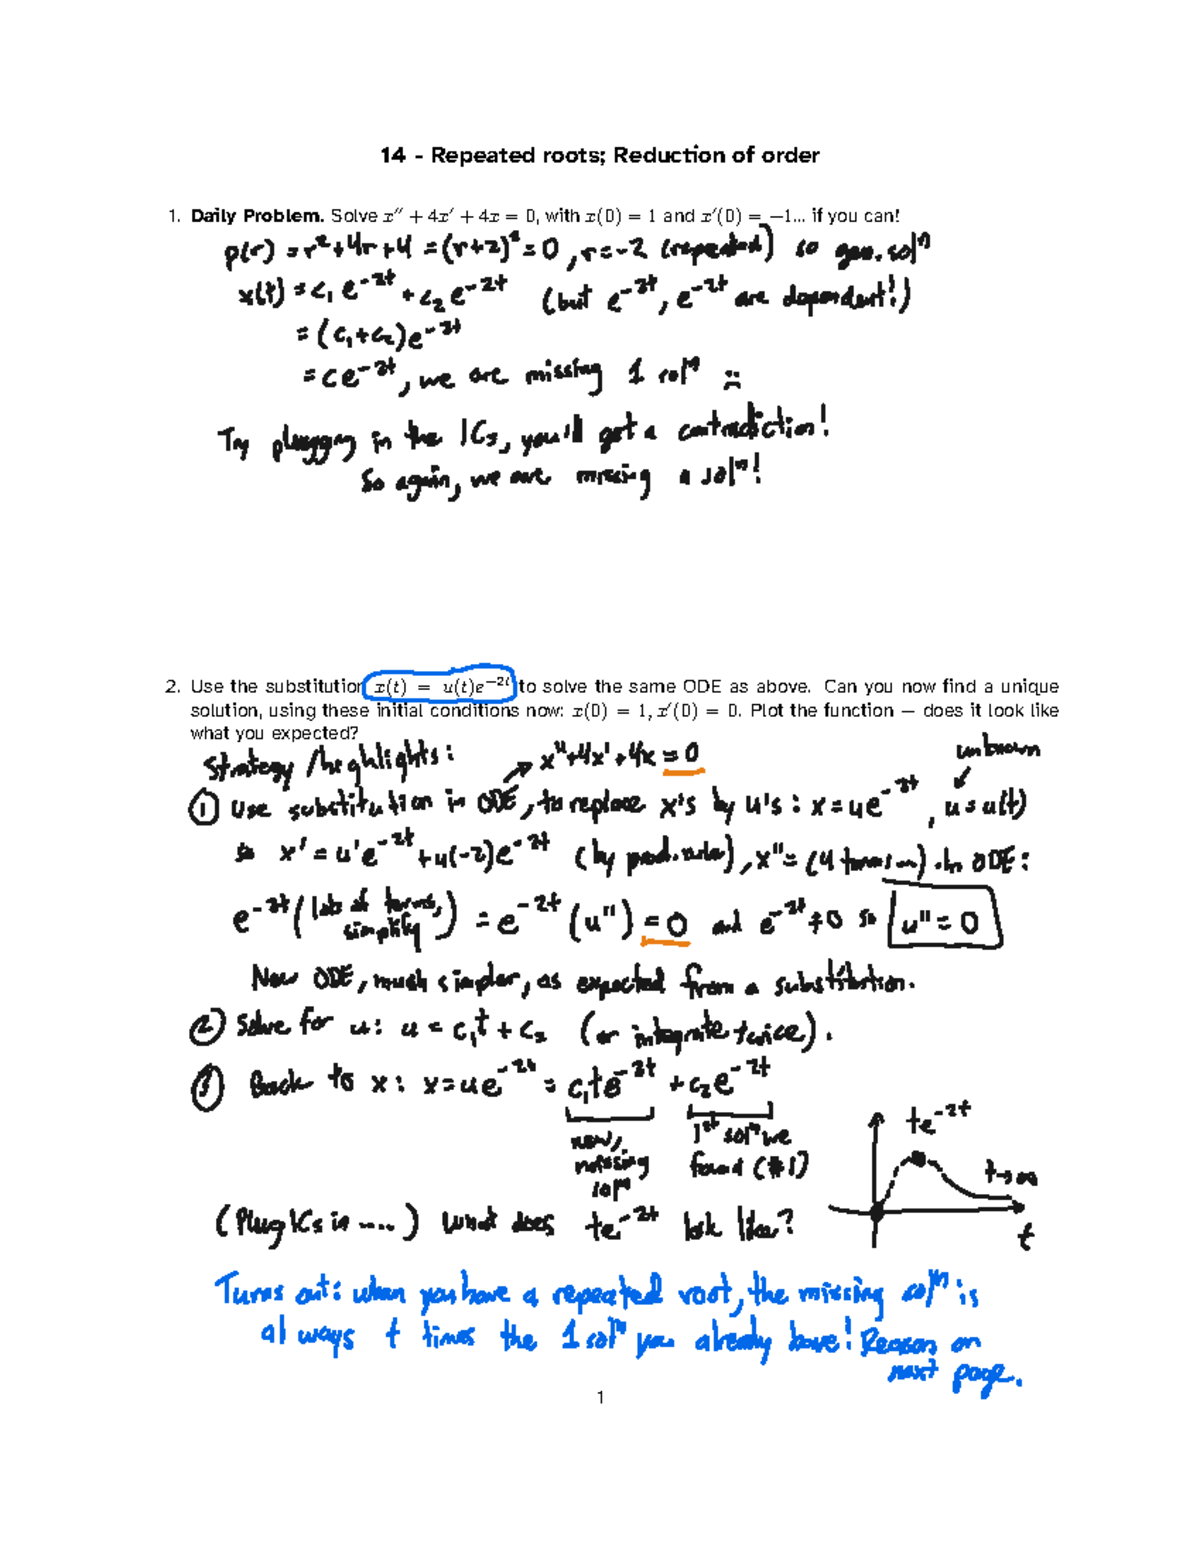 14 - Repeated roots; Reduction of order
1. Daily Problem. Solve x″ + 4x′ + 4x = 0, with x(0) = 1 and x′(0) = −1... if you can!
p(r) = r² + 4r + 4 = (r+2)² = 0, r = -2 (repeated) so gen. solⁿ
x(t) = c₁ e^{-2t} + c₂ e^{-2t} (but e^{-2t}, e^{-2t} are dependent!)
= (c₁+c₂) e^{-2t}
= c e^{-2t}, we are missing 1 solⁿ :(
Try plugging in the ICs, you'll get a contradiction!
So again, we are missing a solⁿ!
2. Use the substitution x(t) = u(t)e^{−2t} to solve the same ODE as above. Can you now find a unique
solution, using these initial conditions now: x(0) = 1, x′(0) = 0. Plot the function — does it look like
what you expected?
Strategy / highlights: x″+4x′+4x = 0
unknown
① Use substitution in ODE, to replace x's by u's : x = ue^{-2t}, u = u(t)
so x′ = u′e^{-2t} + u(-2)e^{-2t} (by prod. rule), x″ = (4 terms ...). In ODE:
e^{-2t} (lots of terms, simplify) = e^{-2t} (u″) = 0 and e^{-2t} ≠ 0 so u″ = 0
New ODE, much simpler, as expected from a substitution.
② Solve for u: u = c₁t + c₂ (or integrate twice).
③ Back to x: x = ue^{-2t} = c₁te^{-2t} + c₂e^{-2t}
new, missing solⁿ
1st solⁿ we found (#1)
te^{-2t}
t→∞
t
(Plug ICs in ....) What does te^{-2t} look like?
Turns out: when you have a repeated root, the missing solⁿ is
always t times the 1 solⁿ you already have! Reason on
next page.
1